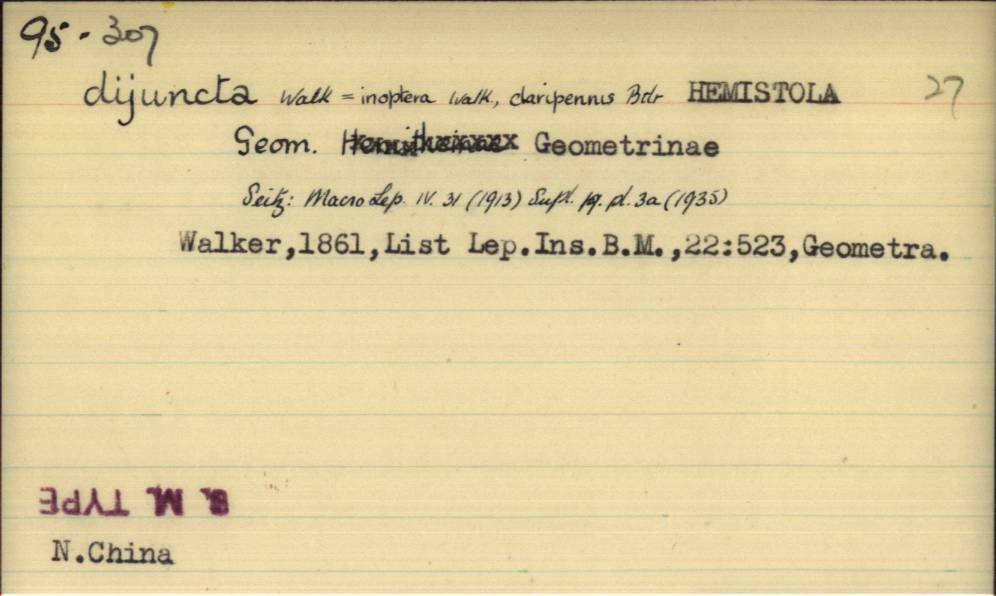 95-307
dijuncta Walk = inoptera Walk., claripennis Btlr HEMISTOLA 27
Geom. Hemitheinae Geometrinae
Seitz: Macro Lep. IV. 31 (1913) Supl. 19. pl. 3a (1935)
Walker,1861,List Lep.Ins.B.M.,22:523,Geometra.
B. M. TYPE
N.China